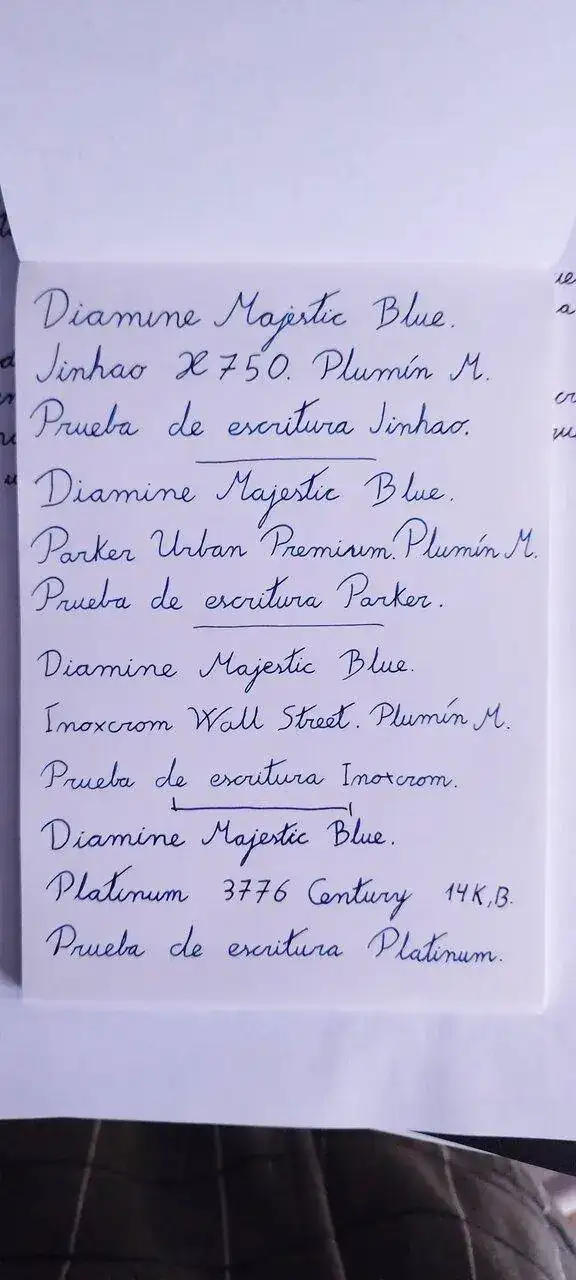 Diamine Majestic Blue.
Jinhao X750. Plumín M.
Prueba de escritura Jinhao.
Diamine Majestic Blue.
Parker Urban Premium. Plumín M.
Prueba de escritura Parker.
Diamine Majestic Blue.
Inoxcrom Wall Street. Plumín M.
Prueba de escritura Inoxcrom.
Diamine Majestic Blue.
Platinum 3776 Century 14K, B.
Prueba de escritura Platinum.